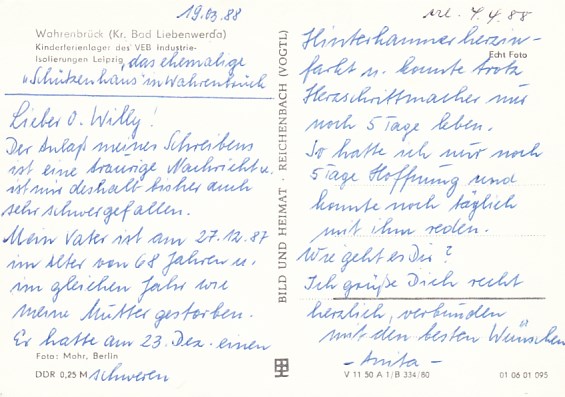 19.03.88
Wahrenbrück (Kr. Bad Liebenwerda)
Kinderferienlager des VEB Industrie-
Isolierungen Leipzig, das ehemalige
"Schützenhaus" in Wahrenbrück
Lieber O. Willy!
Der Anlaß meines Schreibens
ist eine traurige Nachricht u.
ist mir deshalb bisher auch
sehr schwergefallen.
Mein Vater ist am 27.12.87
im Alter von 68 Jahren u.
im gleichen Jahr wie
meine Mutter gestorben.
Er hatte am 23. Dez. einen
Foto: Mohr, Berlin
DDR 0,25 M schweren
BILD UND HEIMAT · REICHENBACH (VOGTL)
4.4.88
Hinterhammerherzin-
Echt Foto
farkt u. konnte trotz
Herzschrittmacher nur
noch 5 Tage leben.
So hatte ich nur noch
5 Tage Hoffnung und
konnte noch täglich
mit ihm reden.
Wie geht es Dir?
Ich grüße Dich recht
herzlich, verbunden
mit den besten Wünschen
- Anita -
V 11 50 A 1/B 334/80 01 06 01 095